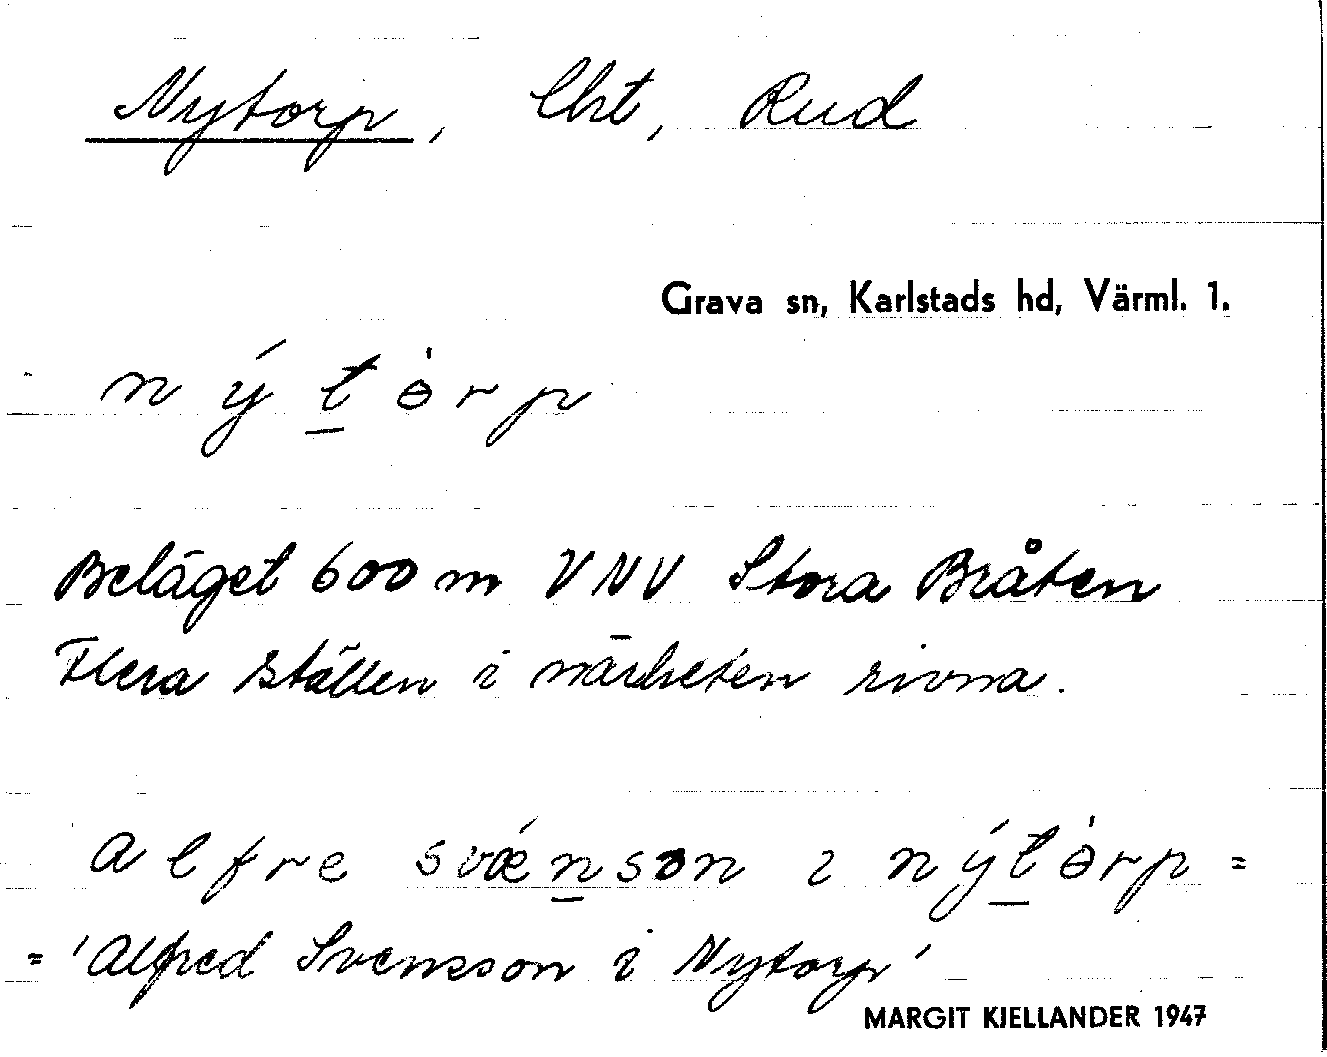 Nytorp, lht, Rud
Grava sn, Karlstads hd, Värml. 1.
n ý t̲ ɵ̍ r p
Beläget 600 m VNV Stora Bråten
Flera ställen i närheten rivna.
alfre svǽn̲son i nýt̲ɵ̍rp =
= 'Alfred Svensson i Nytorp'
MARGIT KJELLANDER 1947